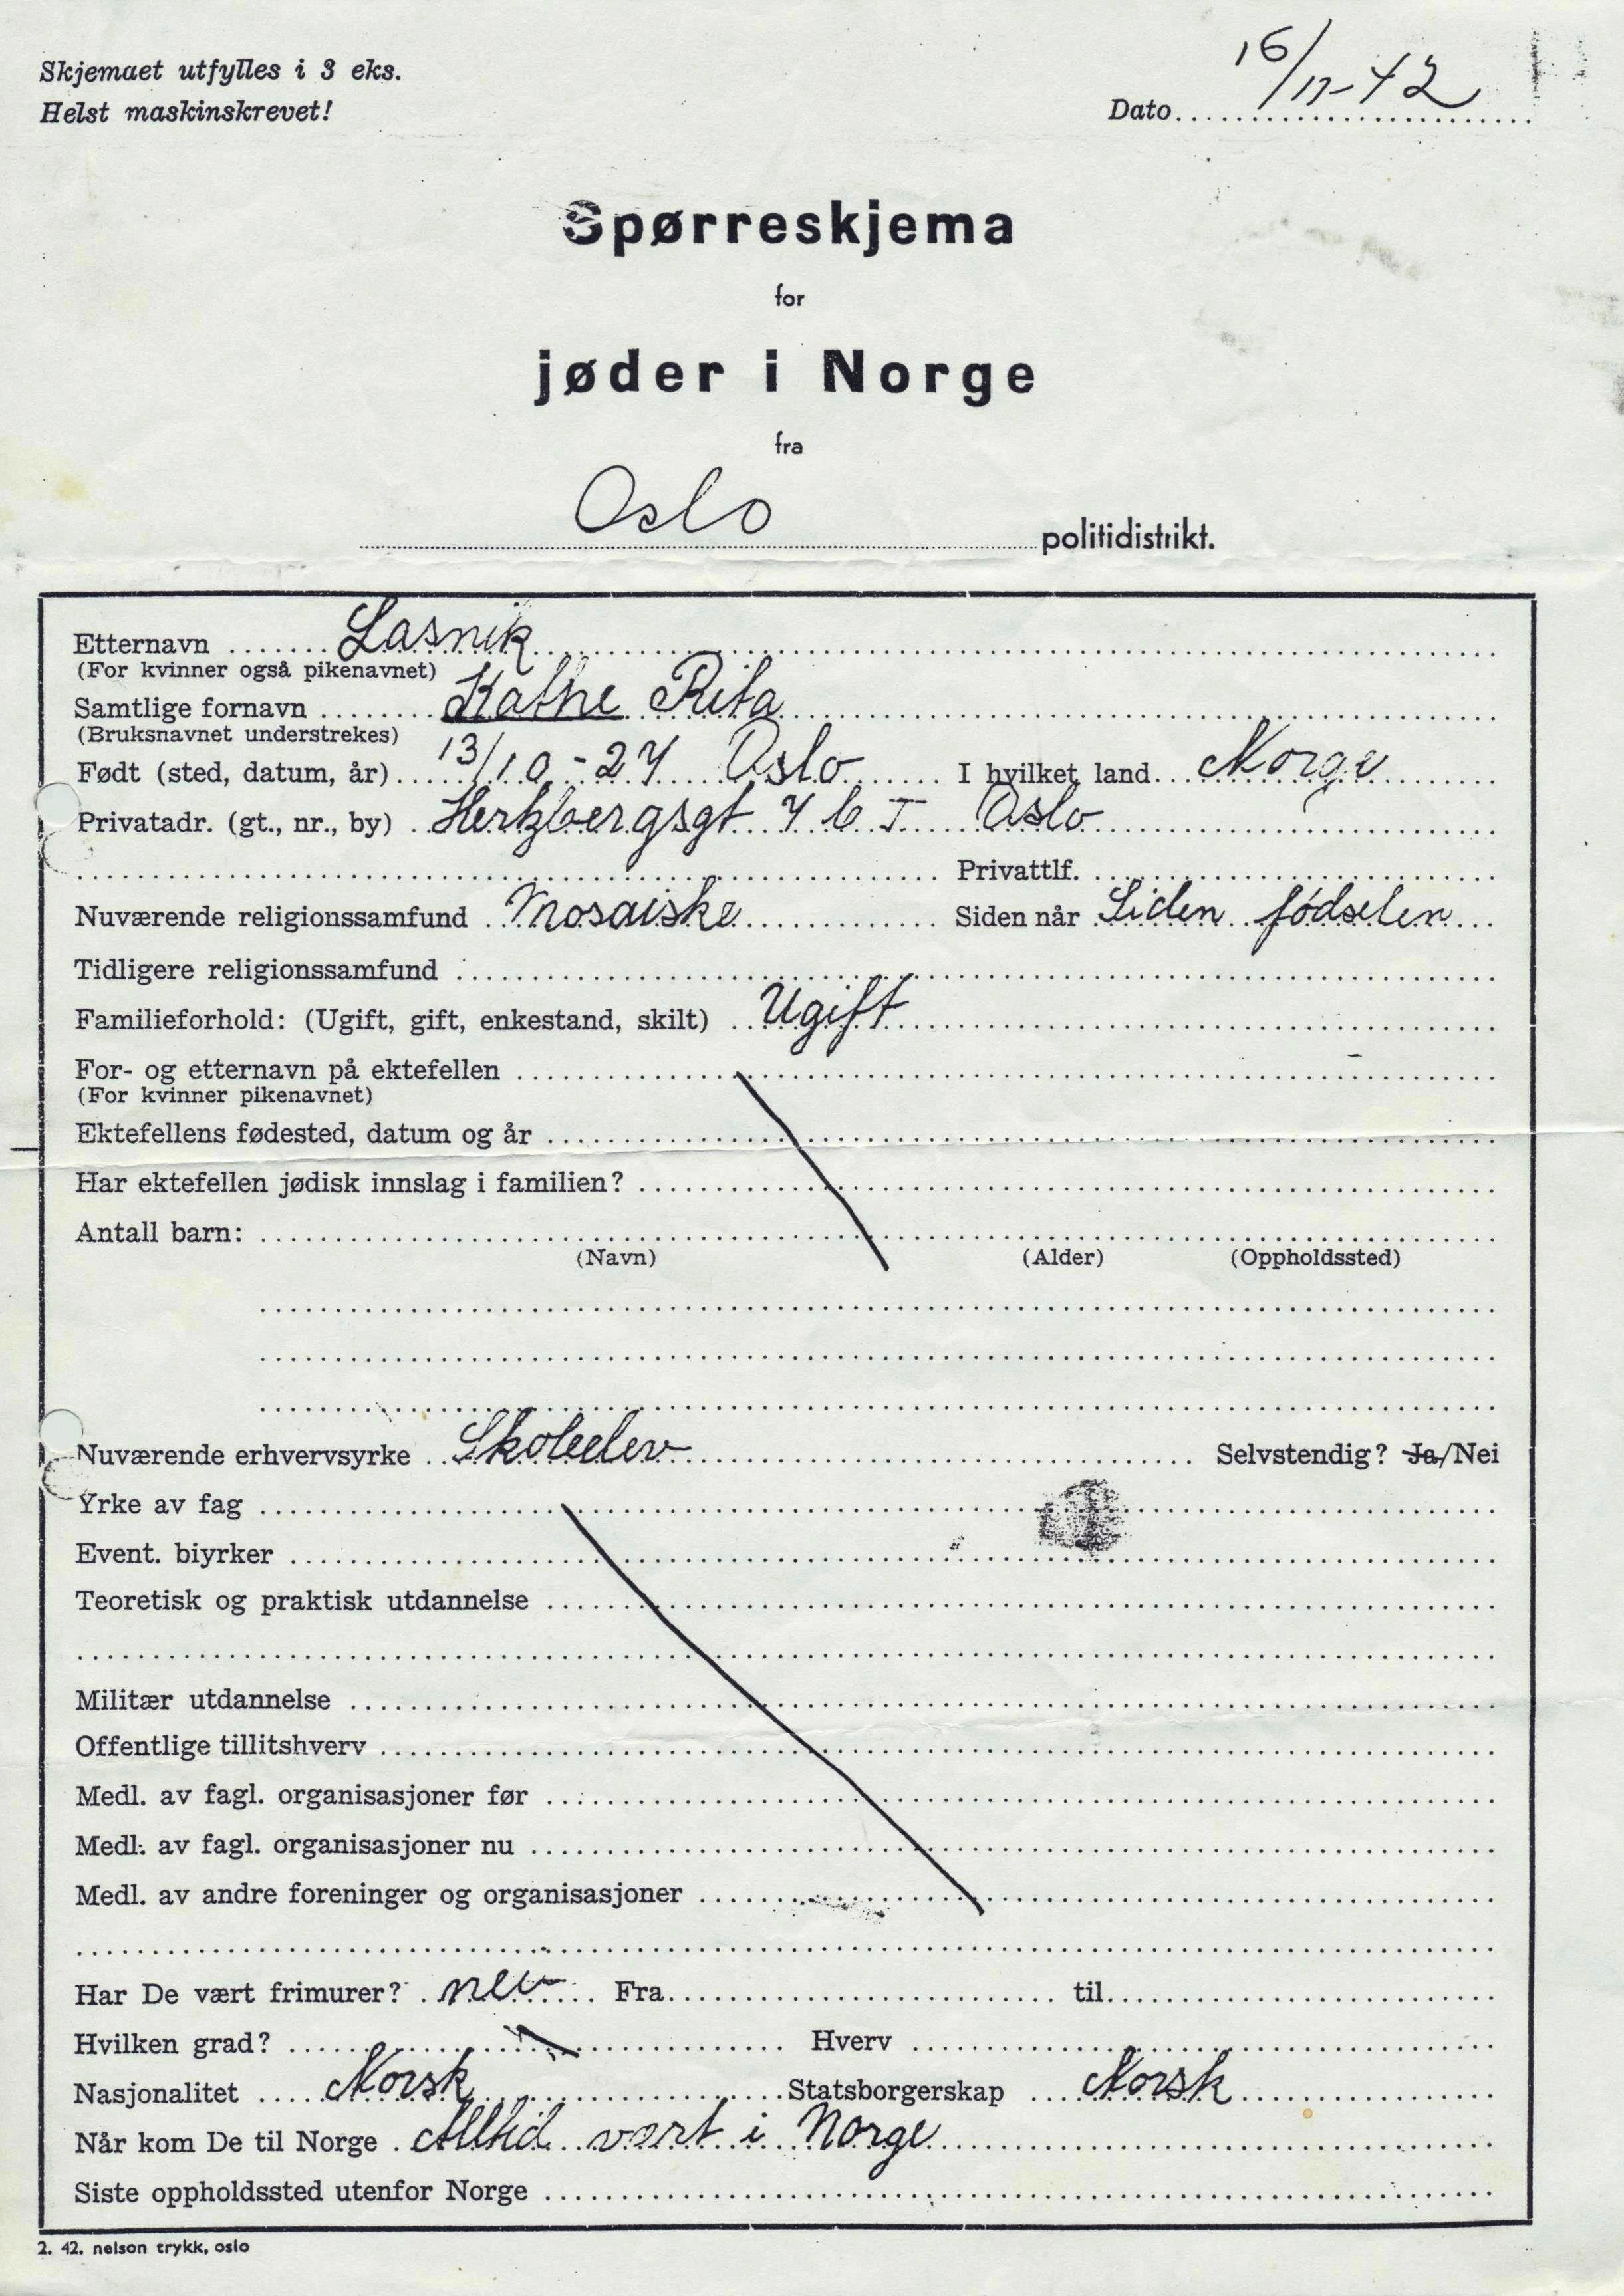 Skjemaet utfylles i 3 eks.
Helst maskinskrevet!
Dato 16/11-42
Spørreskjema
for
jøder i Norge
fra
Oslo politidistrikt.
Etternavn Lasnik
(For kvinner også pikenavnet)
Samtlige fornavn Kathe Rita
(Bruksnavnet understrekes)
Født (sted, datum, år) 13/10-27 Oslo I hvilket land Norge
Privatadr. (gt., nr., by) Hertzbergsgt 7 b I Oslo
Privattlf.
Nuværende religionssamfund Mosaiske Siden når Siden fødselen
Tidligere religionssamfund
Familieforhold: (Ugift, gift, enkestand, skilt) Ugift
For- og etternavn på ektefellen
(For kvinner pikenavnet)
Ektefellens fødested, datum og år
Har ektefellen jødisk innslag i familien?
Antall barn:
(Navn) (Alder) (Oppholdssted)
Nuværende erhvervsyrke Skoleelev Selvstendig? Ja/Nei
Yrke av fag
Event. biyrker
Teoretisk og praktisk utdannelse
Militær utdannelse
Offentlige tillitshverv
Medl. av fagl. organisasjoner før
Medl. av fagl. organisasjoner nu
Medl. av andre foreninger og organisasjoner
Har De vært frimurer? nei Fra til
Hvilken grad? Hverv
Nasjonalitet Norsk Statsborgerskap Norsk
Når kom De til Norge Alltid vært i Norge
Siste oppholdssted utenfor Norge
2. 42. nelson trykk, oslo